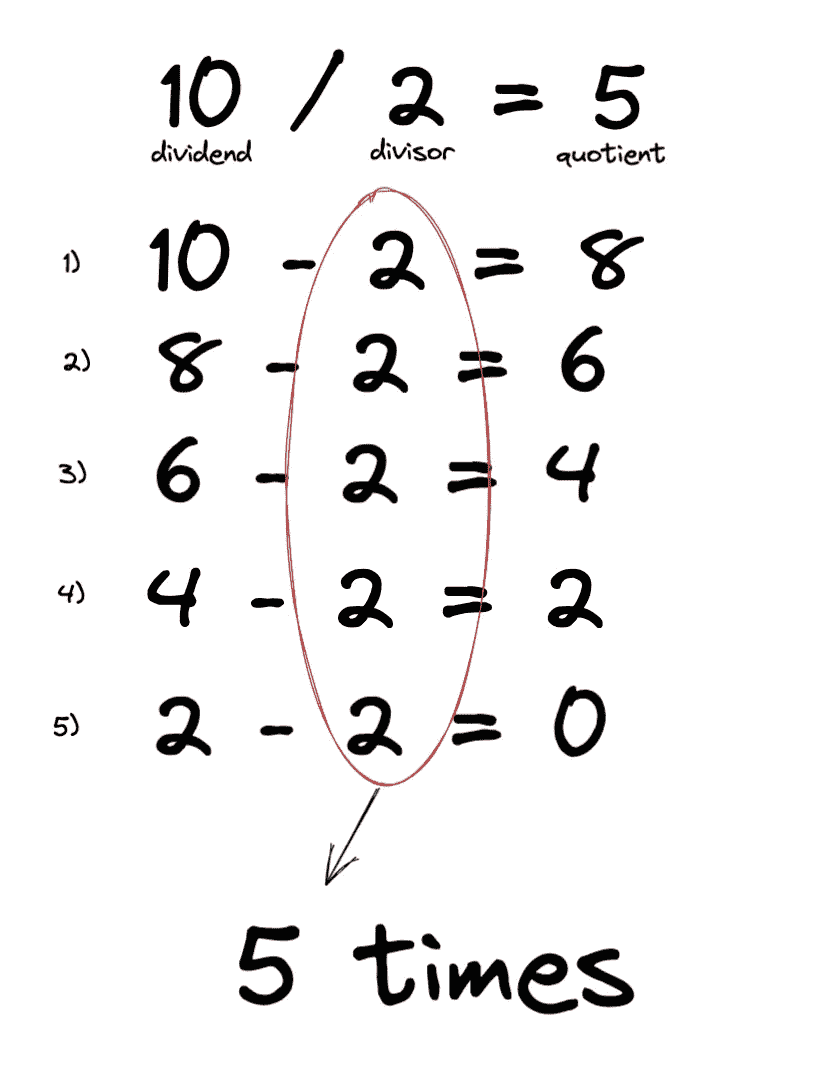 10 / 2 = 5
dividend divisor quotient
1) 10 - 2 = 8
2) 8 - 2 = 6
3) 6 - 2 = 4
4) 4 - 2 = 2
5) 2 - 2 = 0
5 times